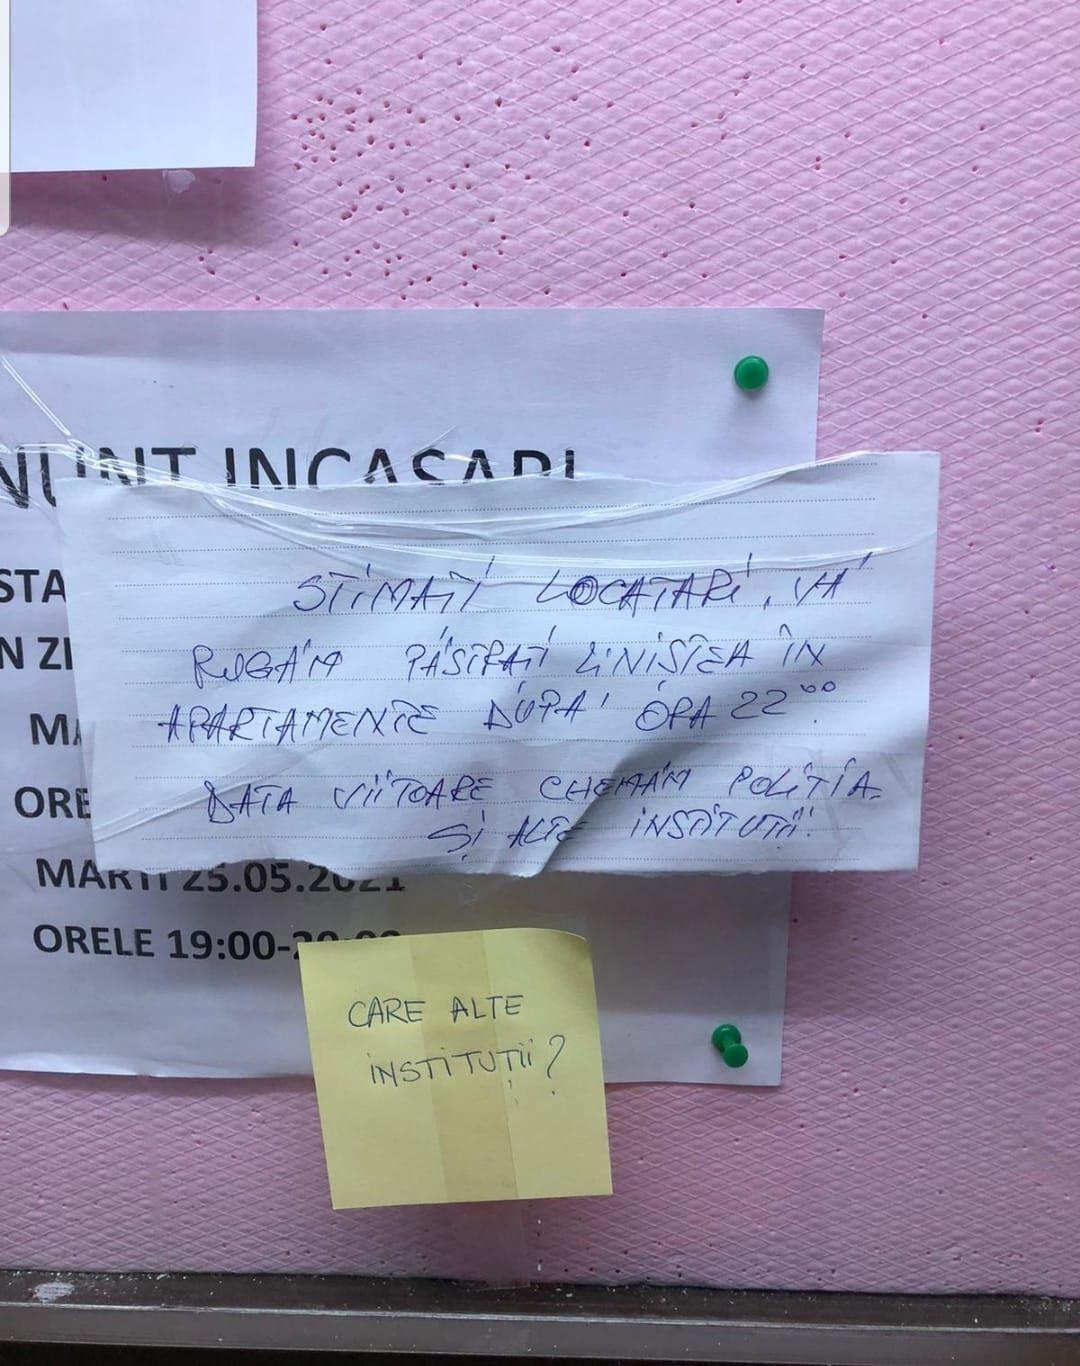 NUNT INCASARI
STA
N ZI
MA
ORE
MARTI 25.05.2021
ORELE 19:00-20:00
STIMAȚI LOCATARI, VĂ
RUGĂM PĂSTRAȚI LINIȘTEA ÎN
APARTAMENTE DUPĂ ORA 22⁰⁰.
DATA VIITOARE CHEMĂM POLIȚIA
ȘI ALTE INSTITUȚII!
CARE ALTE
INSTITUȚII?